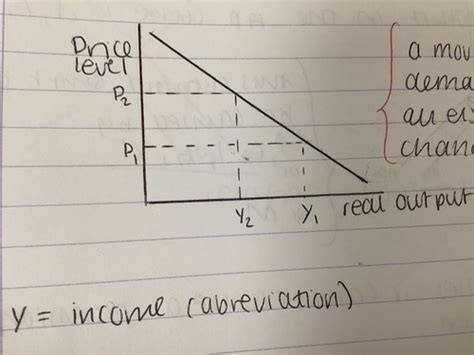 Price
level
P2
P1
Y2
Y1
real output
a mov
dema
chan
Y = income (abreviation)